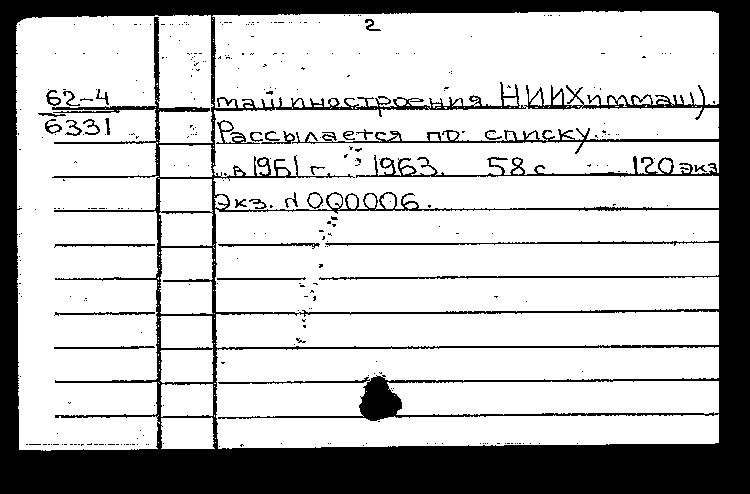 2
62-4
6331
машиностроения. НИИХиммаш).
Рассылается по списку.
1961 г. 1963. 58 с 120 экз
Экз. N 000006.